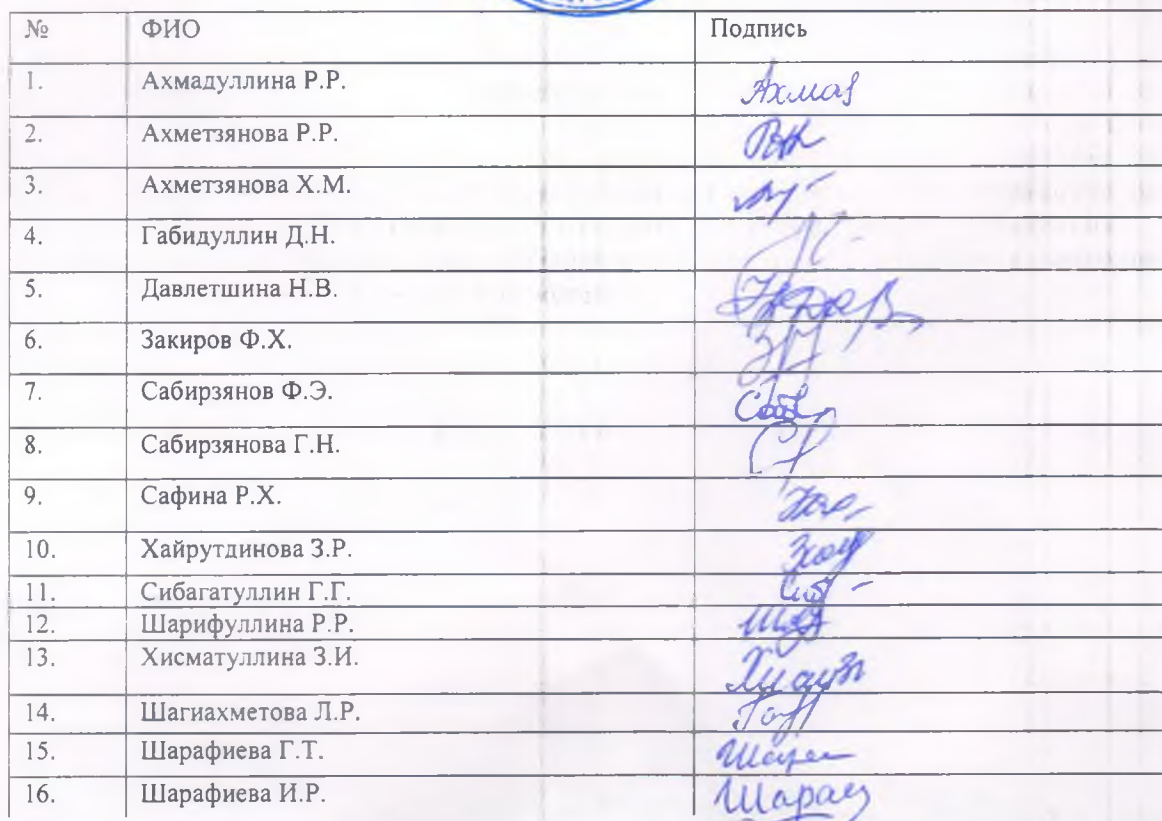 № ФИО Подпись
1. Ахмадуллина Р.Р. Ахмад
2. Ахметзянова Р.Р.
3. Ахметзянова Х.М.
4. Габидуллин Д.Н.
5. Давлетшина Н.В.
6. Закиров Ф.Х.
7. Сабирзянов Ф.Э.
8. Сабирзянова Г.Н.
9. Сафина Р.Х.
10. Хайрутдинова З.Р.
11. Сибагатуллин Г.Г.
12. Шарифуллина Р.Р.
13. Хисматуллина З.И.
14. Шагиахметова Л.Р.
15. Шарафиева Г.Т.
16. Шарафиева И.Р.